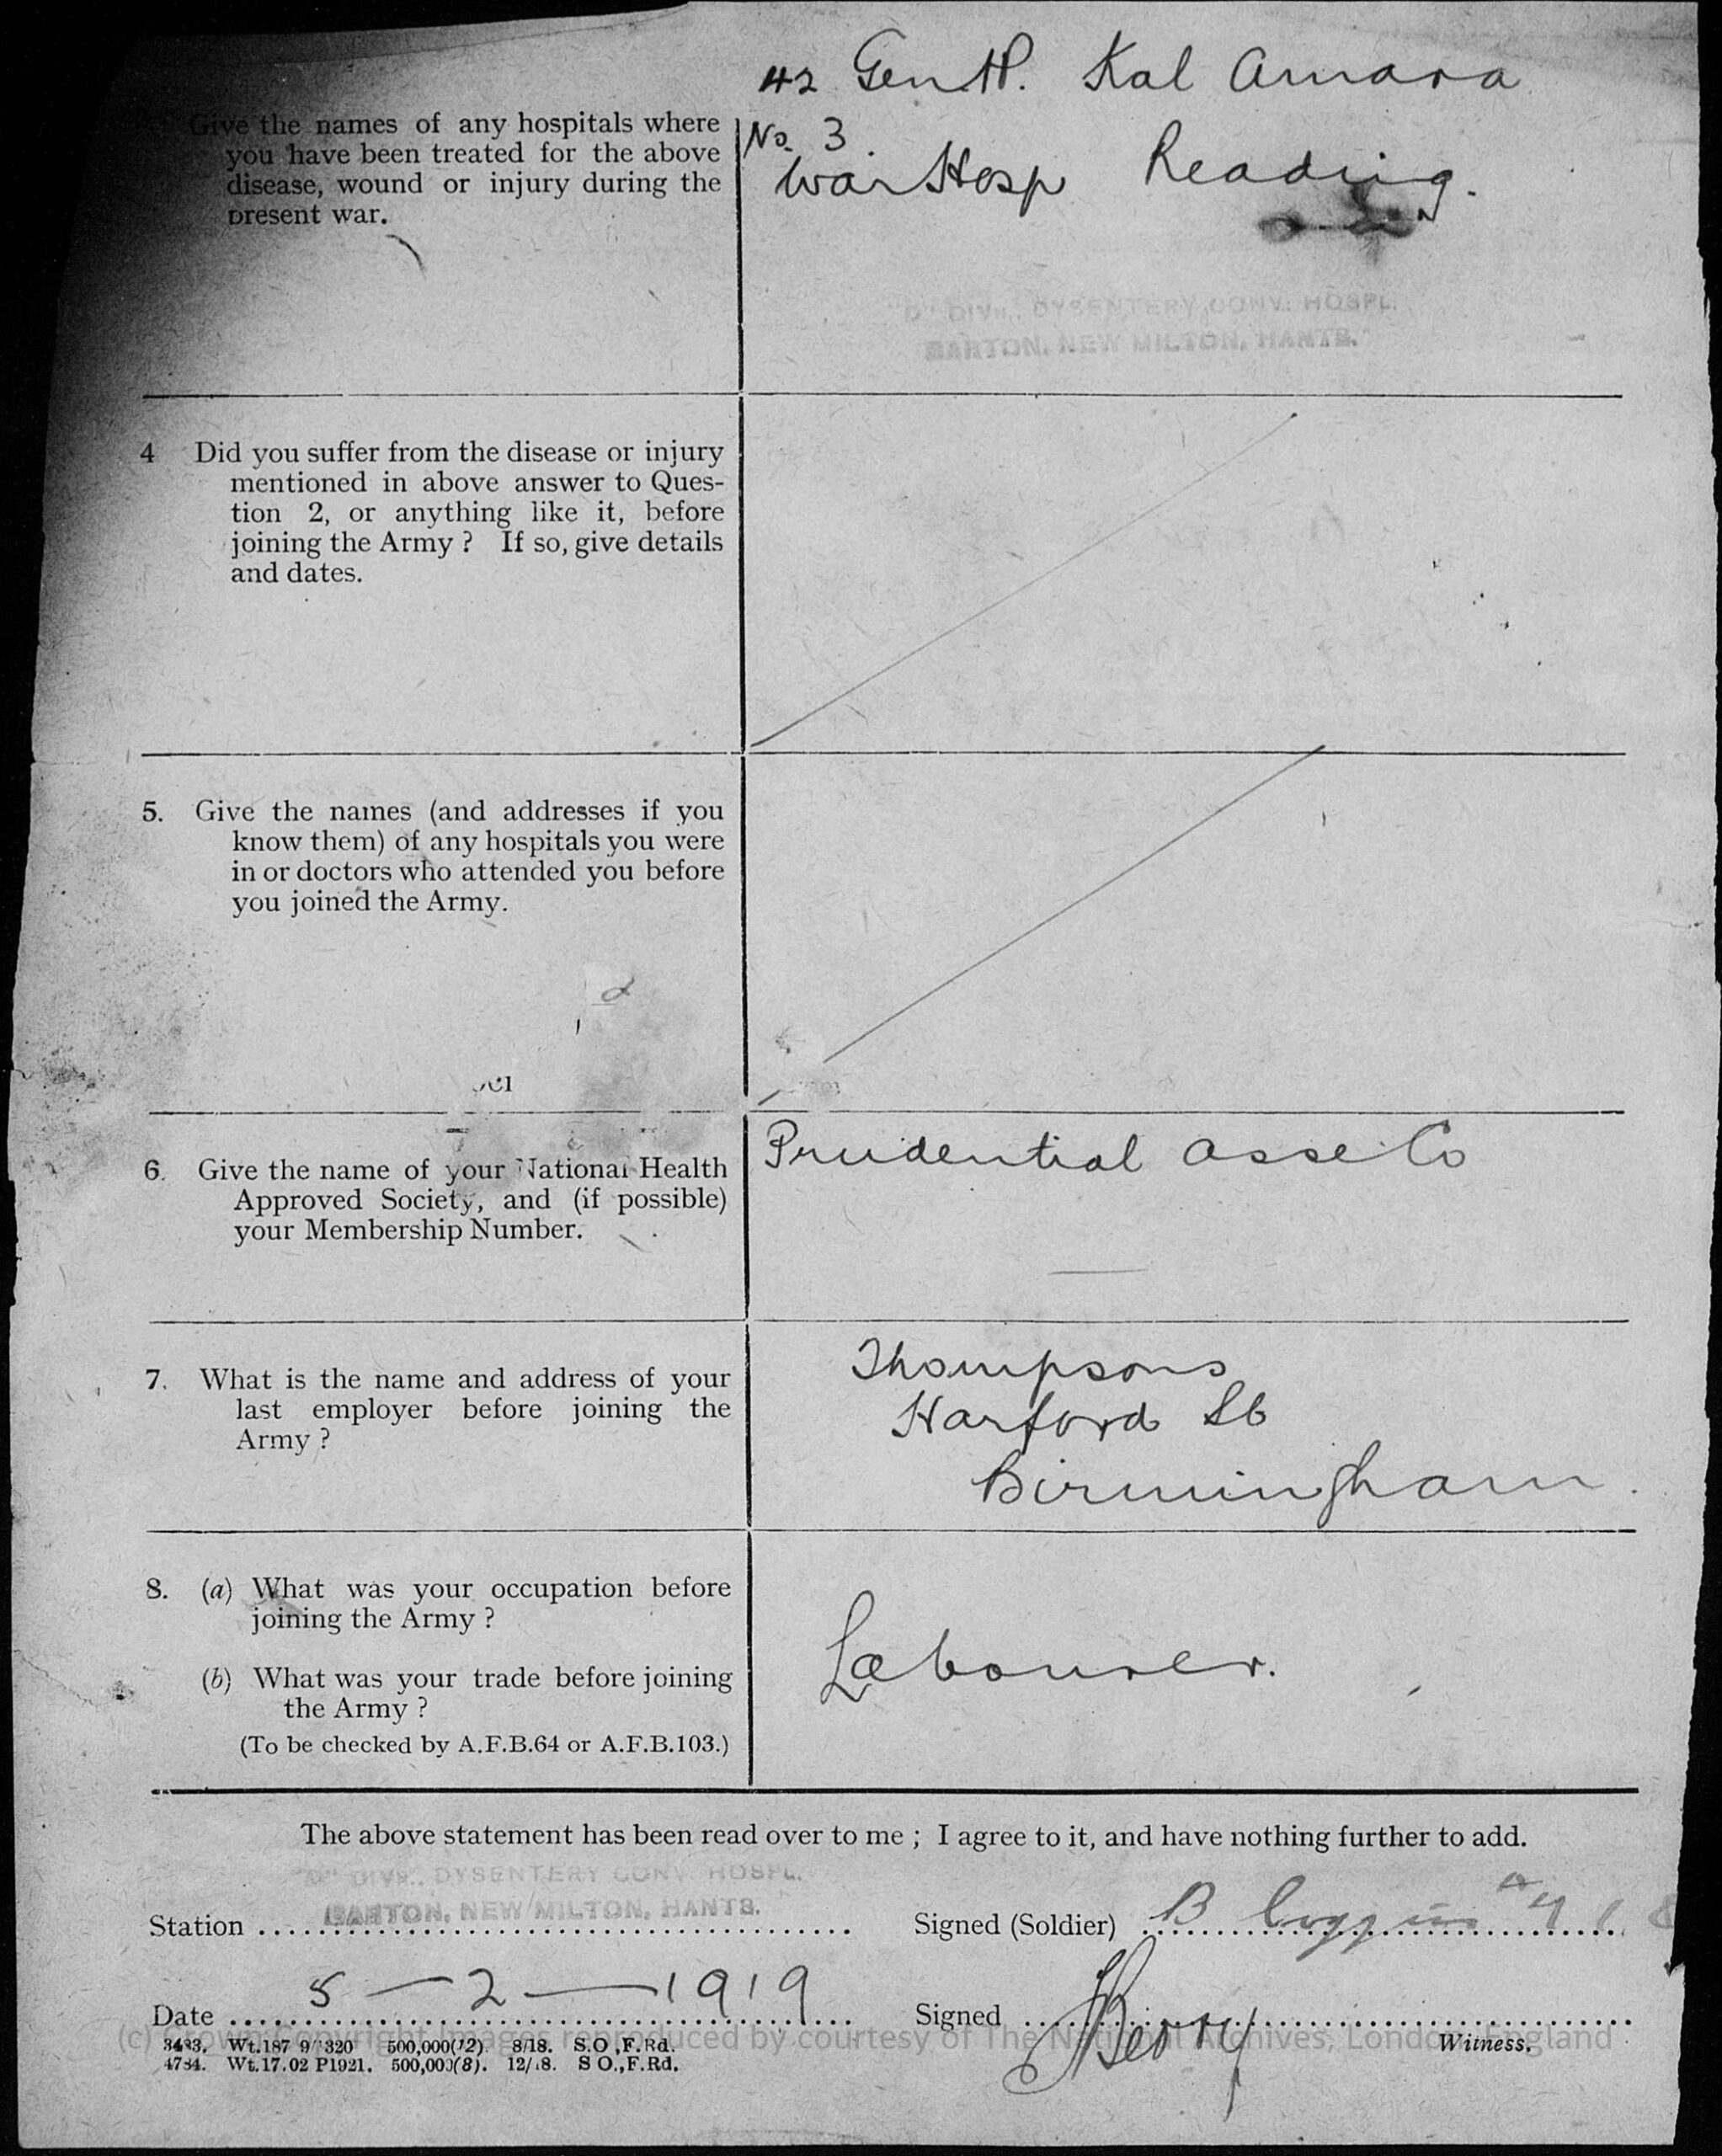 42 Gen H. Kal Amara
Give the names of any hospitals where
you have been treated for the above
disease, wound or injury during the
present war.
No. 3
War Hosp Reading.
"D" DIVN., DYSENTERY CONV. HOSPL.
BARTON, NEW MILTON, HANTS.
4 Did you suffer from the disease or injury
mentioned in above answer to Ques-
tion 2, or anything like it, before
joining the Army ? If so, give details
and dates.
5. Give the names (and addresses if you
know them) of any hospitals you were
in or doctors who attended you before
you joined the Army.
6. Give the name of your National Health
Approved Society, and (if possible)
your Membership Number.
Prudential Asse Co
7. What is the name and address of your
last employer before joining the
Army ?
Thompsons
Harford St
Birmingham
8. (a) What was your occupation before
joining the Army ?
(b) What was your trade before joining
the Army ?
(To be checked by A.F.B.64 or A.F.B.103.)
Labourer.
The above statement has been read over to me ; I agree to it, and have nothing further to add.
"D" DIVN., DYSENTERY CONV. HOSPL.
BARTON, NEW MILTON, HANTS.
Station
Signed (Soldier) B
Date 5 — 2 — 1919
Signed Berry
Witness.
(c) Crown Copyright images reproduced by courtesy of The National Archives, London, England
3433. Wt.187 9/ 320 500,000(12). 8/18. S.O.,F.Rd.
4734. Wt.17.02 P1921. 500,000(8). 12/18. S.O.,F.Rd.